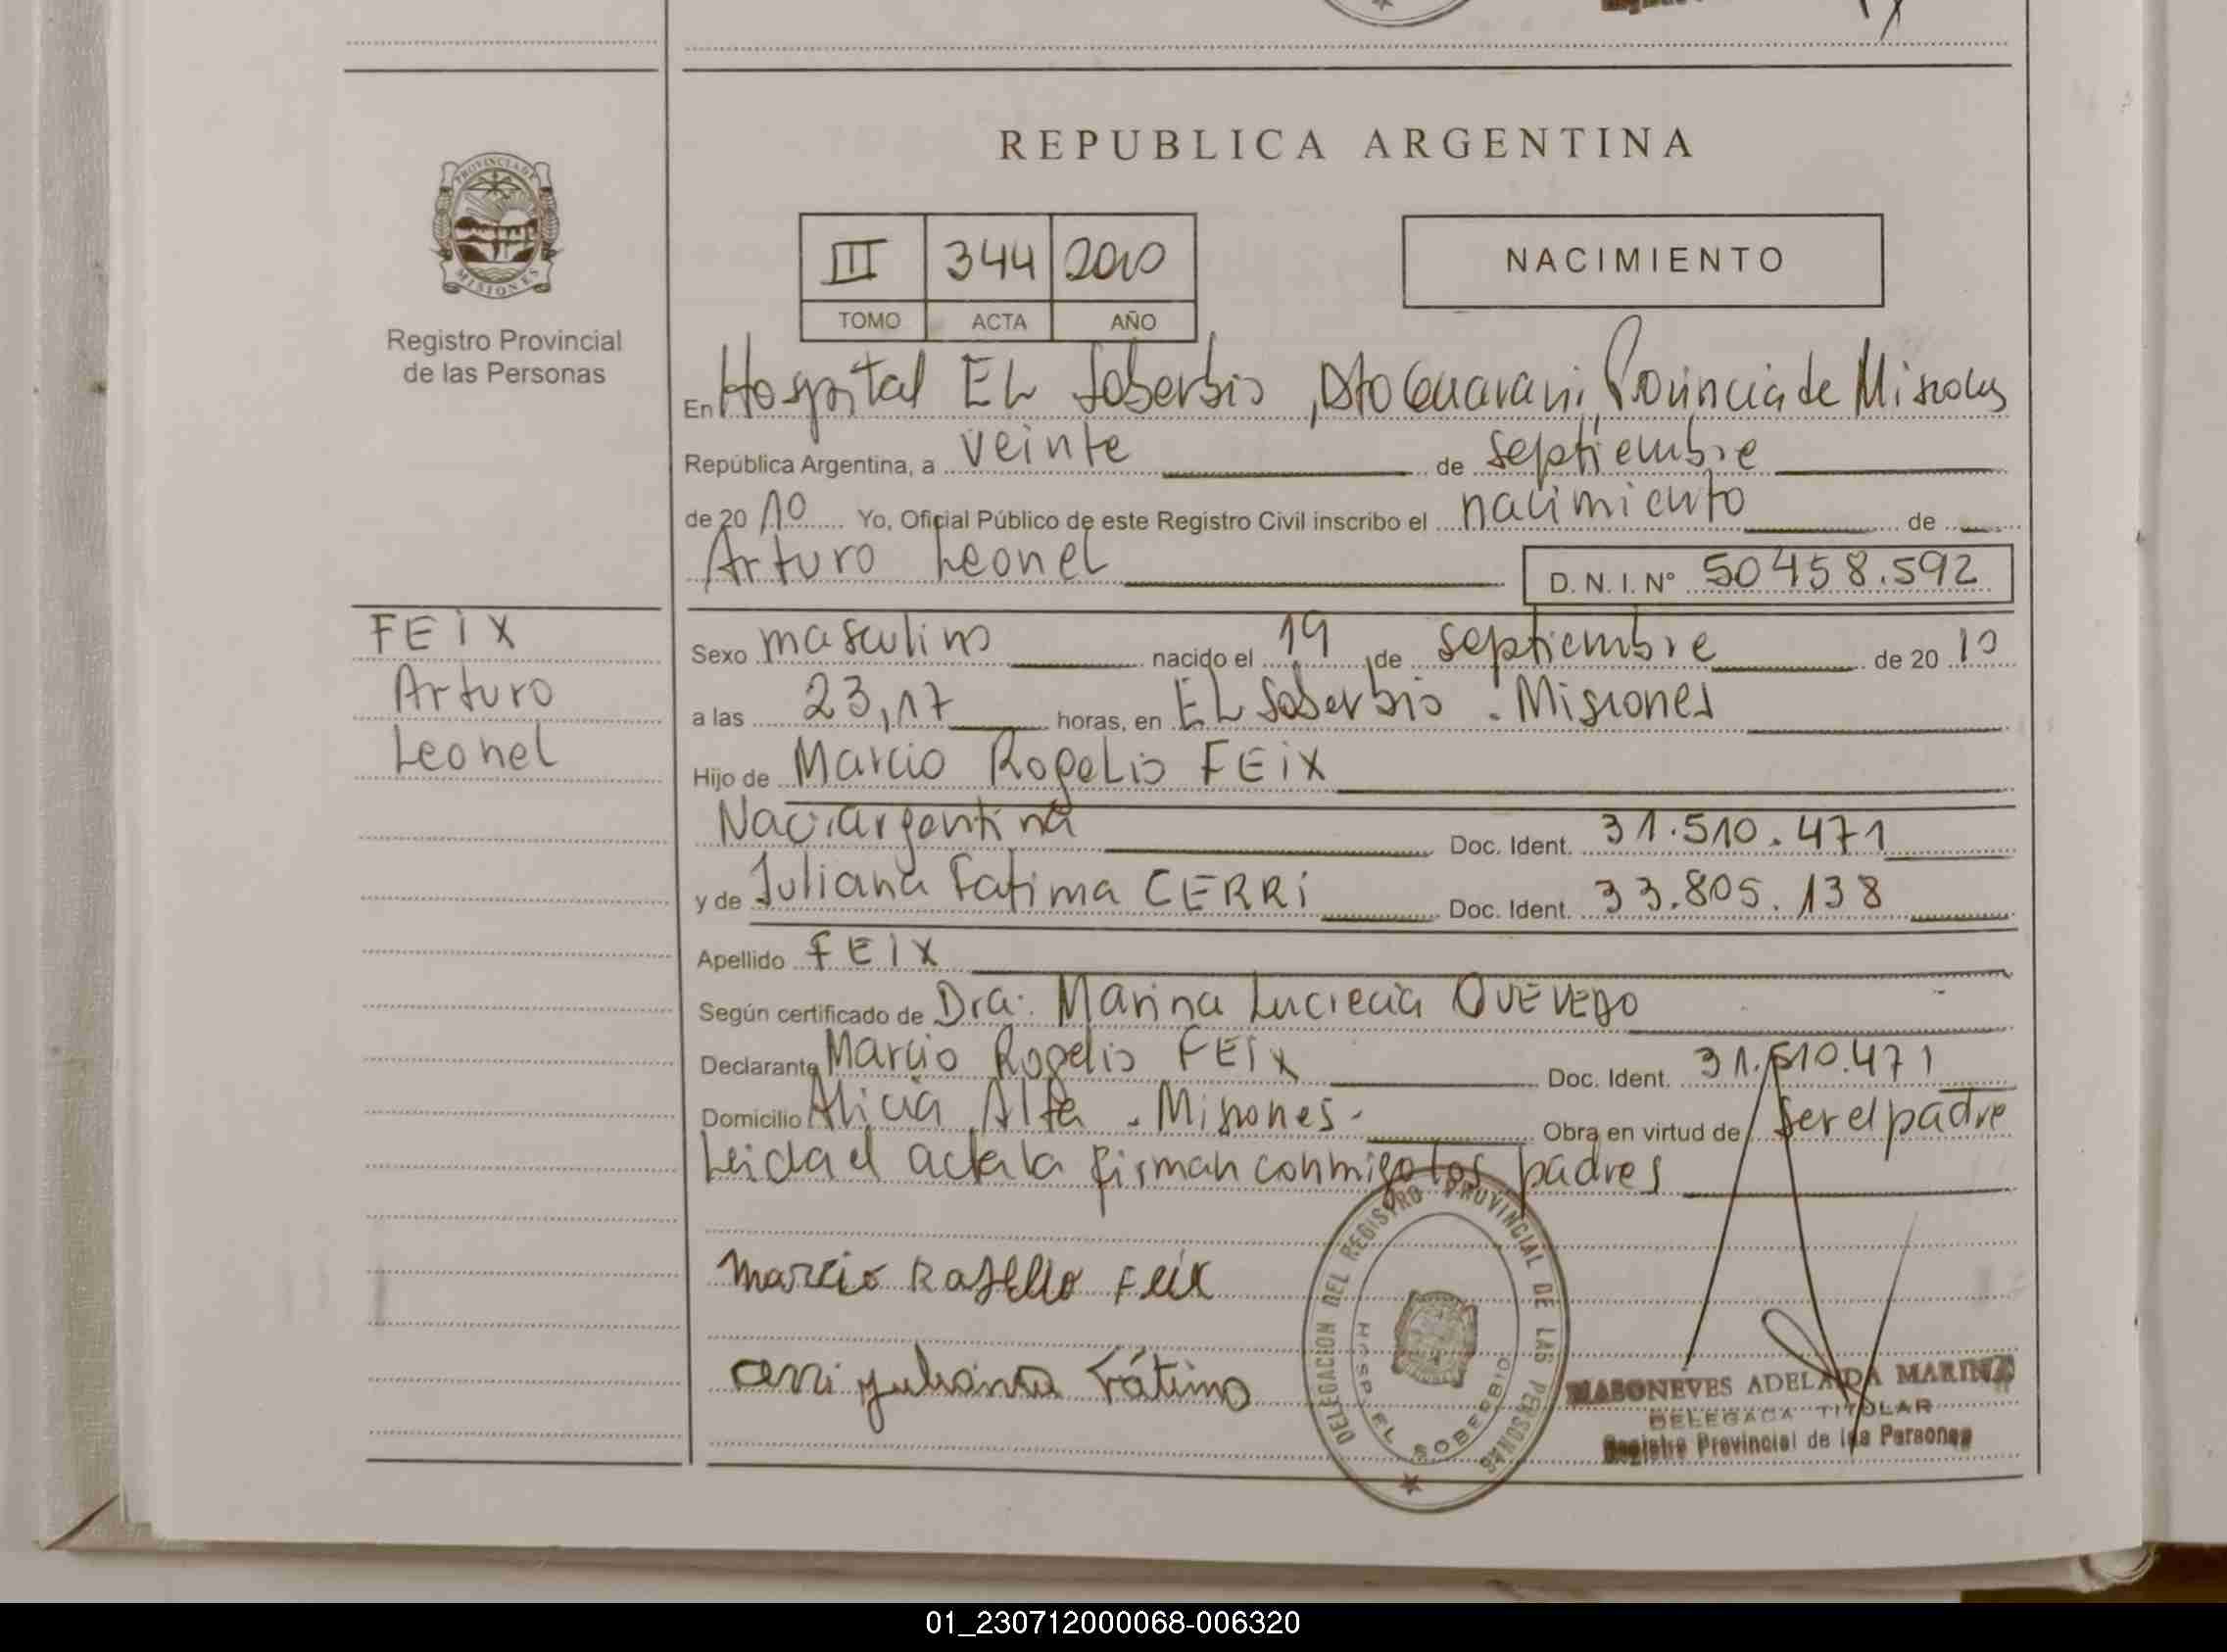 REPUBLICA ARGENTINA
PROVINCIA DE
MISIONES
Registro Provincial
de las Personas
III 344 2010
TOMO ACTA AÑO
NACIMIENTO
En Hospital EL Soberbio, Dto Guarani, Provincia de Misiones
República Argentina, a veinte de septiembre
de 2010 Yo, Oficial Público de este Registro Civil inscribo el nacimiento de
Arturo Leonel D.N.I.Nº 50458.592
FEIX
Arturo
Leonel
Sexo masculino nacido el 19 de septiembre de 2010
a las 23,17 horas, en EL Soberbio . Misiones
Hijo de Marcio Rogelio FEIX
Nac. argentina Doc. Ident. 31.510.471
y de Juliana Fatima CERRI Doc. Ident. 33.805.138
Apellido FEIX
Según certificado de Dra. Marina Lucrecia QUEVEDO
Declarante Marcio Rogelio FEIX Doc. Ident. 31.510.471
Domicilio Alicia Alta - Misiones - Obra en virtud de Ser el padre
Leida el acta la firman conmigo los padres
Marcio Feix
Juliana Fátima
DELEGACION DEL REGISTRO PROVINCIAL DE LAS PERSONAS
HOSP. EL SOBERBIO
ADELAIDA
DELEGADA TITULAR
Registro Provincial de las Personas
01_230712000068-006320